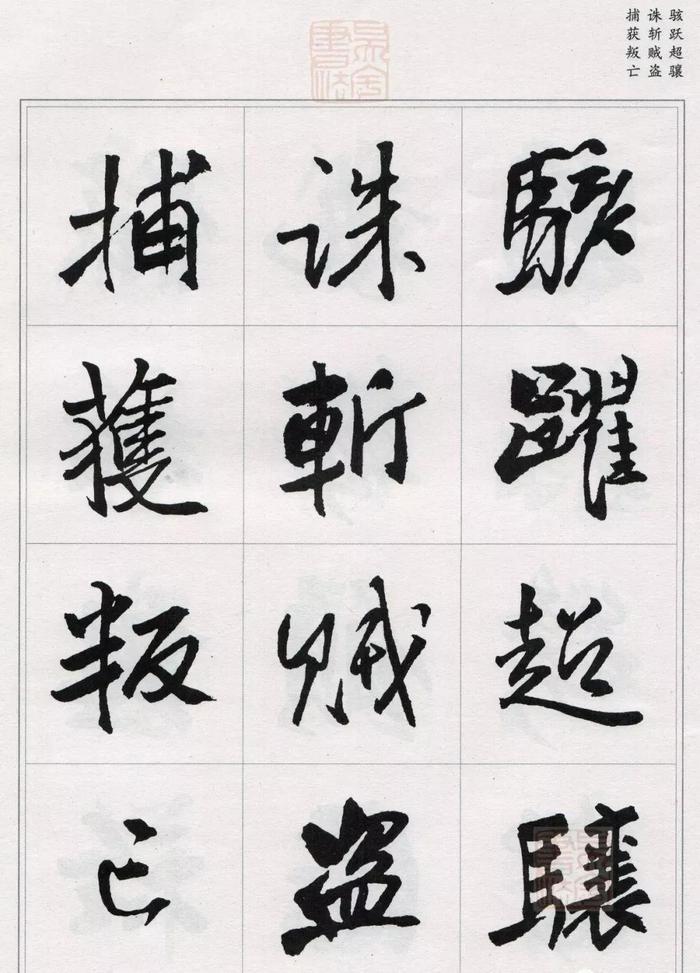 骇跃超骧
诛斩贼盗
捕获叛亡
駭躍超驤
誅斬賊盜
捕獲叛亡